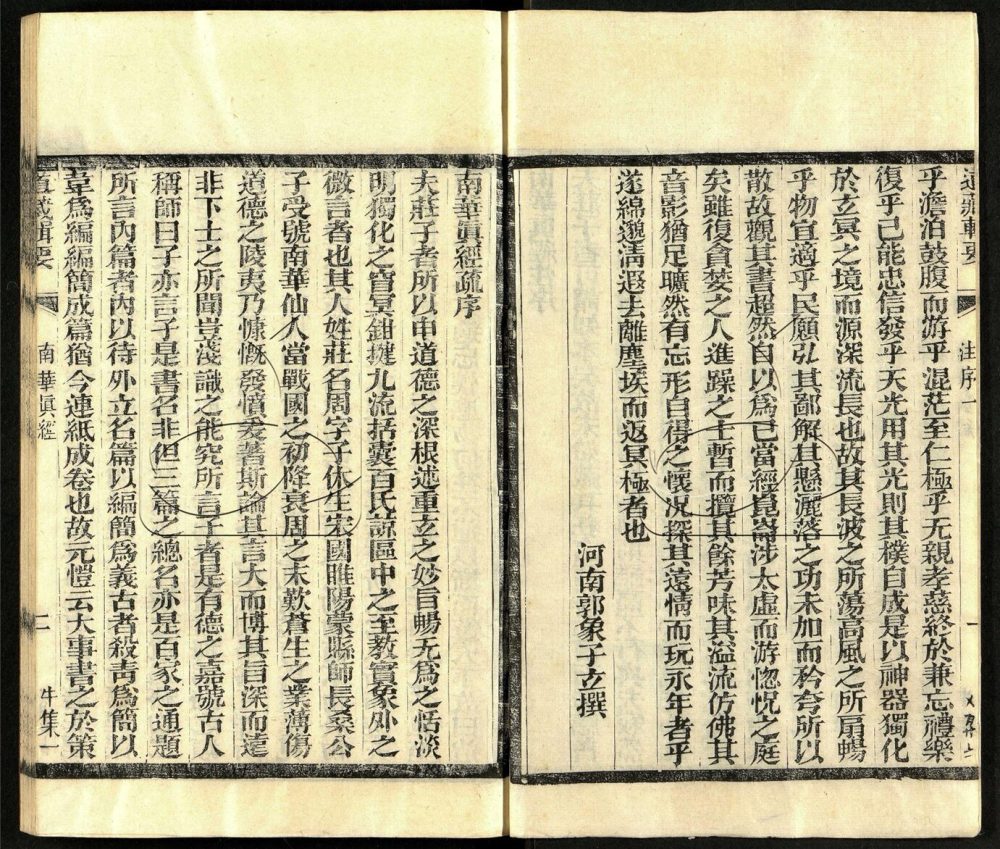 注序一
乎澹泊鼓腹而游乎混茫至仁極乎无親孝慈終於兼忘禮樂
復乎己能忠信發乎天光用其光則其樸自成是以神器獨化
於玄冥之境而源深流長也故其長波之所蕩高風之所扇暢
乎物宜適乎民願弘其鄙解其懸灑落之功未加而矜夸所以
散故觀其書超然自以爲已當經崑崙涉太虛而游惚怳之庭
矣雖復貪婪之人進躁之士暫而攬其餘芳味其溢流仿佛其
音影猶足曠然有忘形自得之懷況探其遠情而玩永年者乎
遂綿邈淸遐去離塵埃而返冥極者也
河南郭象子玄撰
南華眞經疏序
夫莊子者所以申道德之深根述重玄之妙旨暢无爲之恬淡
明獨化之窅冥鉗揵九流括囊百氏諒區中之至教實象外之
微言者也其人姓莊名周字子休生宋國睢陽蒙縣師長桑公
子受號南華仙人當戰國之初降衰周之末歎蒼生之業薄傷
道德之陵夷乃慷慨發憤爰著斯論其言大而博其旨深而遠
非下士之所聞豈淺識之能究所言子者是有德之嘉號古人
稱師曰子亦言子是書名非但三篇之總名亦是百家之通題
所言內篇者內以待外立名篇以編簡爲義古者殺靑爲簡以
韋爲編編簡成篇猶今連紙成卷也故元愷云大事書之於策
道藏輯要 南華眞經 二 牛集一